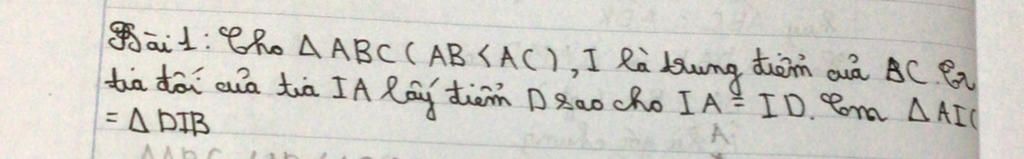 Bài 1: Cho Δ ABC ( AB < AC ), I là trung điểm của BC. Trên
tia đối của tia IA lấy điểm D sao cho IA = ID. Cm Δ AIC
= Δ DIB
A